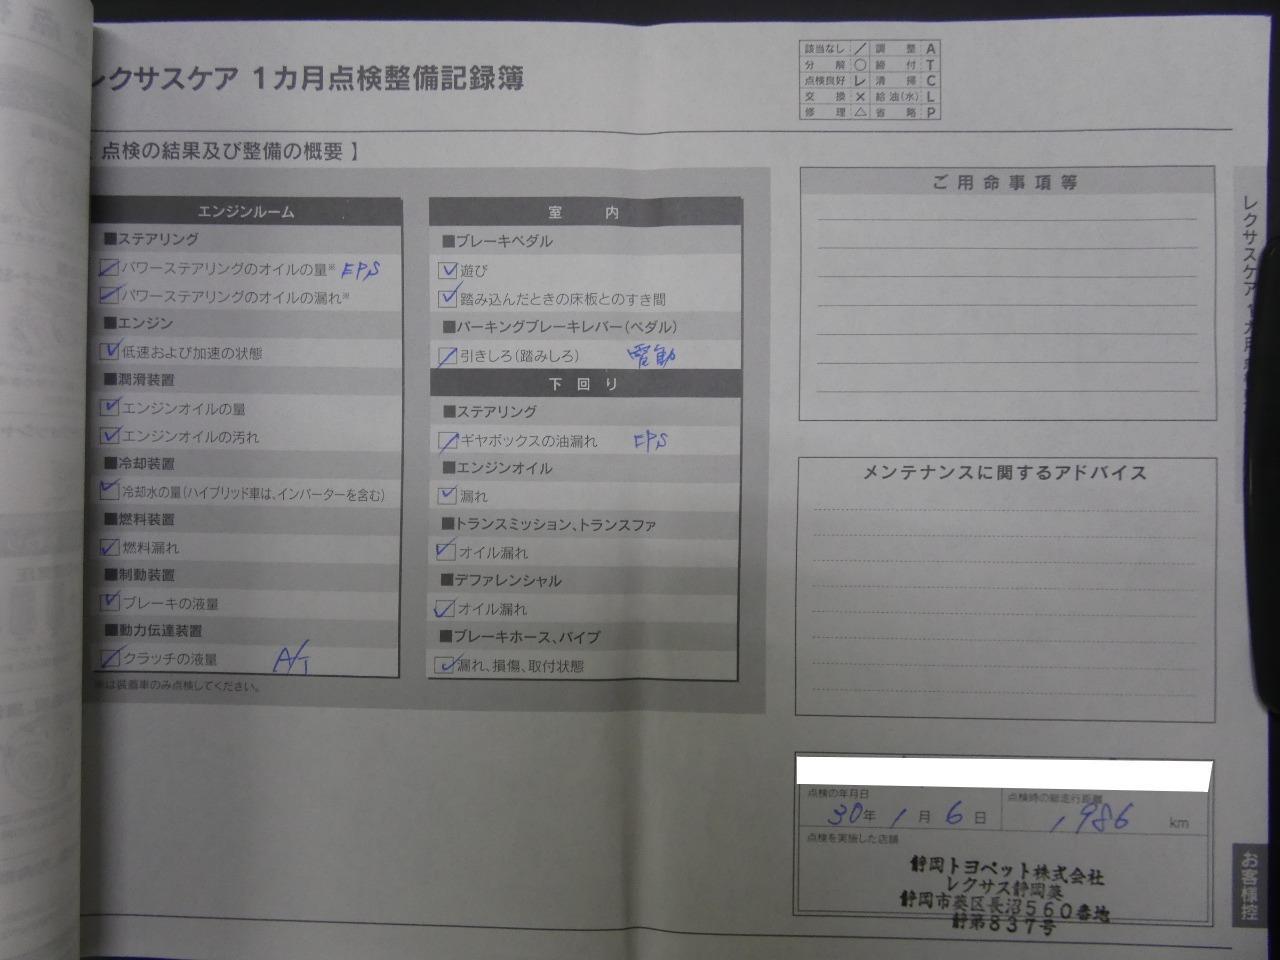 レクサスケア 1カ月点検整備記録簿
該当なし ／ 調整 A
分解 ○ 締付 T
点検良好 レ 清掃 C
交換 × 給油(水) L
修理 △ 省略 P
点検の結果及び整備の概要 】
エンジンルーム
■ステアリング
パワーステアリングのオイルの量※ EPS
パワーステアリングのオイルの漏れ※
■エンジン
低速および加速の状態
■潤滑装置
エンジンオイルの量
エンジンオイルの汚れ
■冷却装置
冷却水の量(ハイブリッド車は、インバーターを含む)
■燃料装置
燃料漏れ
■制動装置
ブレーキの液量
■動力伝達装置
クラッチの液量 A/T
※は装着車のみ点検してください。
室内
■ブレーキペダル
遊び
踏み込んだときの床板とのすき間
■パーキングブレーキレバー(ペダル)
引きしろ(踏みしろ) 電動
下回り
■ステアリング
ギヤボックスの油漏れ EPS
■エンジンオイル
漏れ
■トランスミッション、トランスファ
オイル漏れ
■デファレンシャル
オイル漏れ
■ブレーキホース、パイプ
漏れ、損傷、取付状態
ご用命事項等
メンテナンスに関するアドバイス
点検の年月日
30年 1月 6日
点検時の総走行距離
1,986 km
点検を実施した店舗
静岡トヨペット株式会社
レクサス静岡葵
静岡市葵区長沼560番地
静第837号
レクサスケア 1カ月
お客様控